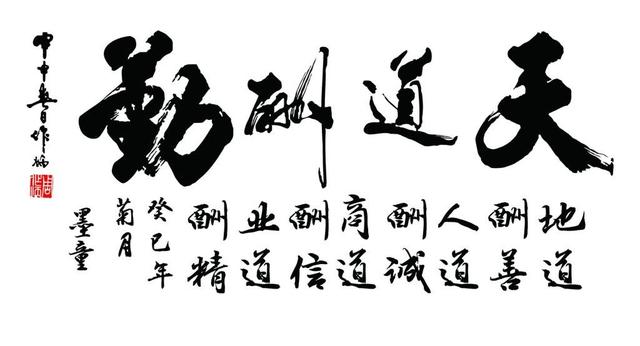 天道酬勤
地道
酬善
人道
酬诚
商道
酬信
业道
酬精
癸巳年
菊月
墨童
甲申春日作